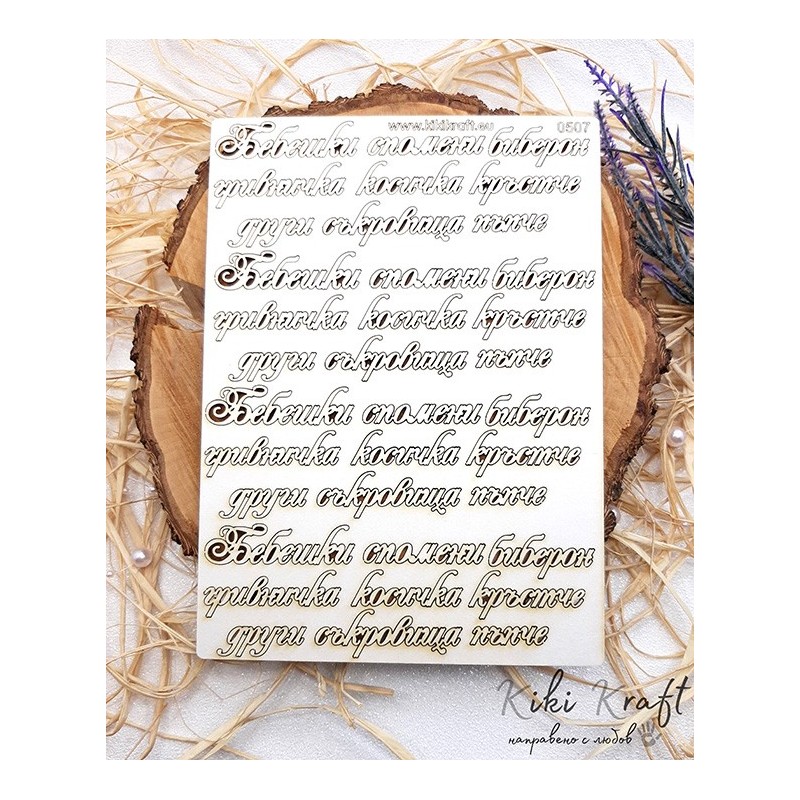 www.kikikraft.eu 0507
Бебешки спомени биберон
гривничка косичка кръстче
други съкровища пъпче
Бебешки спомени биберон
гривничка косичка кръстче
други съкровища пъпче
Бебешки спомени биберон
гривничка косичка кръстче
други съкровища пъпче
Бебешки спомени биберон
гривничка косичка кръстче
други съкровища пъпче
Kiki Kraft
направено с любов